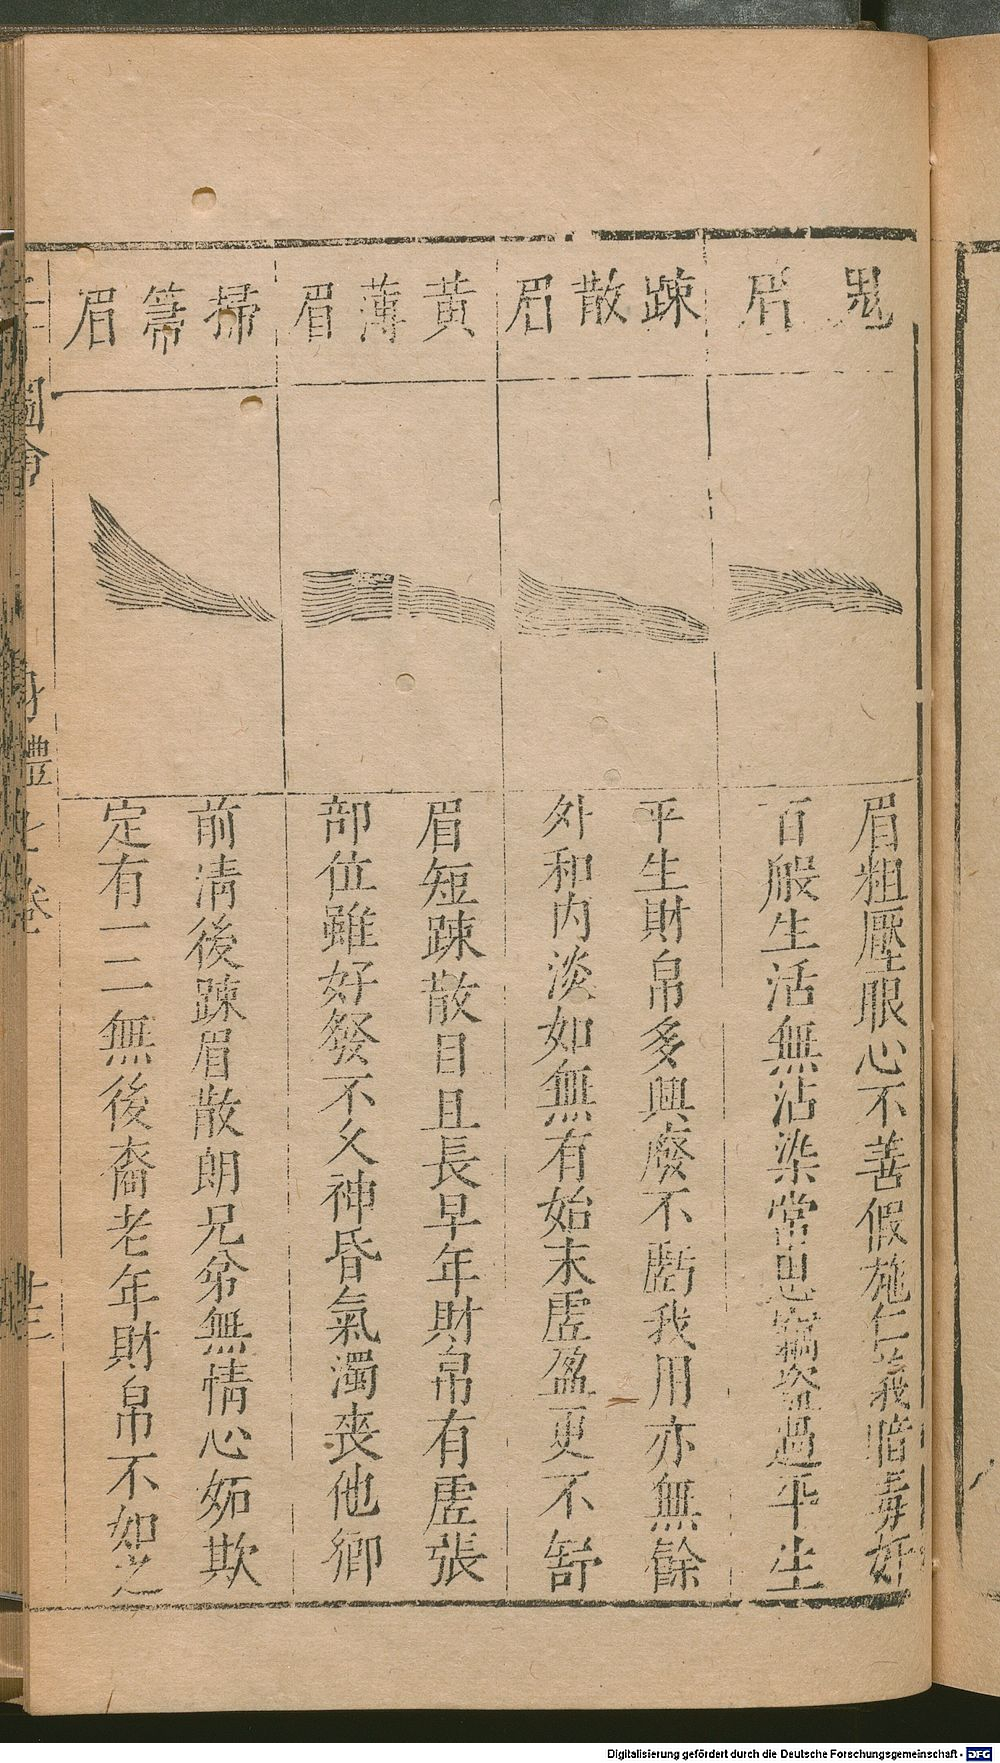 鬼眉
眉粗壓眼心不善假施仁義暗毒奸
百般生活無沾染常思竊盜過平生
踈散眉
平生財帛多興廢不虧我用亦無餘
外和內淡如無有始末虛盈更不舒
黃薄眉
眉短踈散目且長早年財帛有虛張
部位雖好發不久神昏氣濁喪他鄉
掃箒眉
前清後踈眉散朗兄弟無情心妬欺
定有一二無後裔老年財帛不如之
圖會
身體七卷
Digitalisierung gefördert durch die Deutsche Forschungsgemeinschaft - DFG